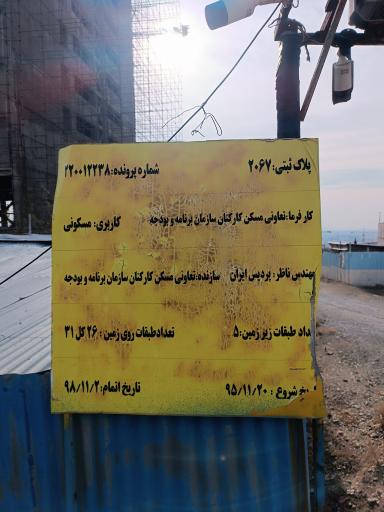 پلاک ثبتی: ۲۰۶۷ شماره پرونده: ۲۲۰۰۱۲۲۳۸
کار فرما: تعاونی مسکن کارکنان سازمان برنامه و بودجه کاربری: مسکونی
مهندس ناظر: پردیس ایران سازنده: تعاونی مسکن کارکنان سازمان برنامه و بودجه
داد طبقات زیر زمین: ۵ تعدادطبقات روی زمین: ۲۶ کل ۳۱
خ شروع: ۹۵/۱۱/۲۰ تاریخ اتمام: ۹۸/۱۱/۲